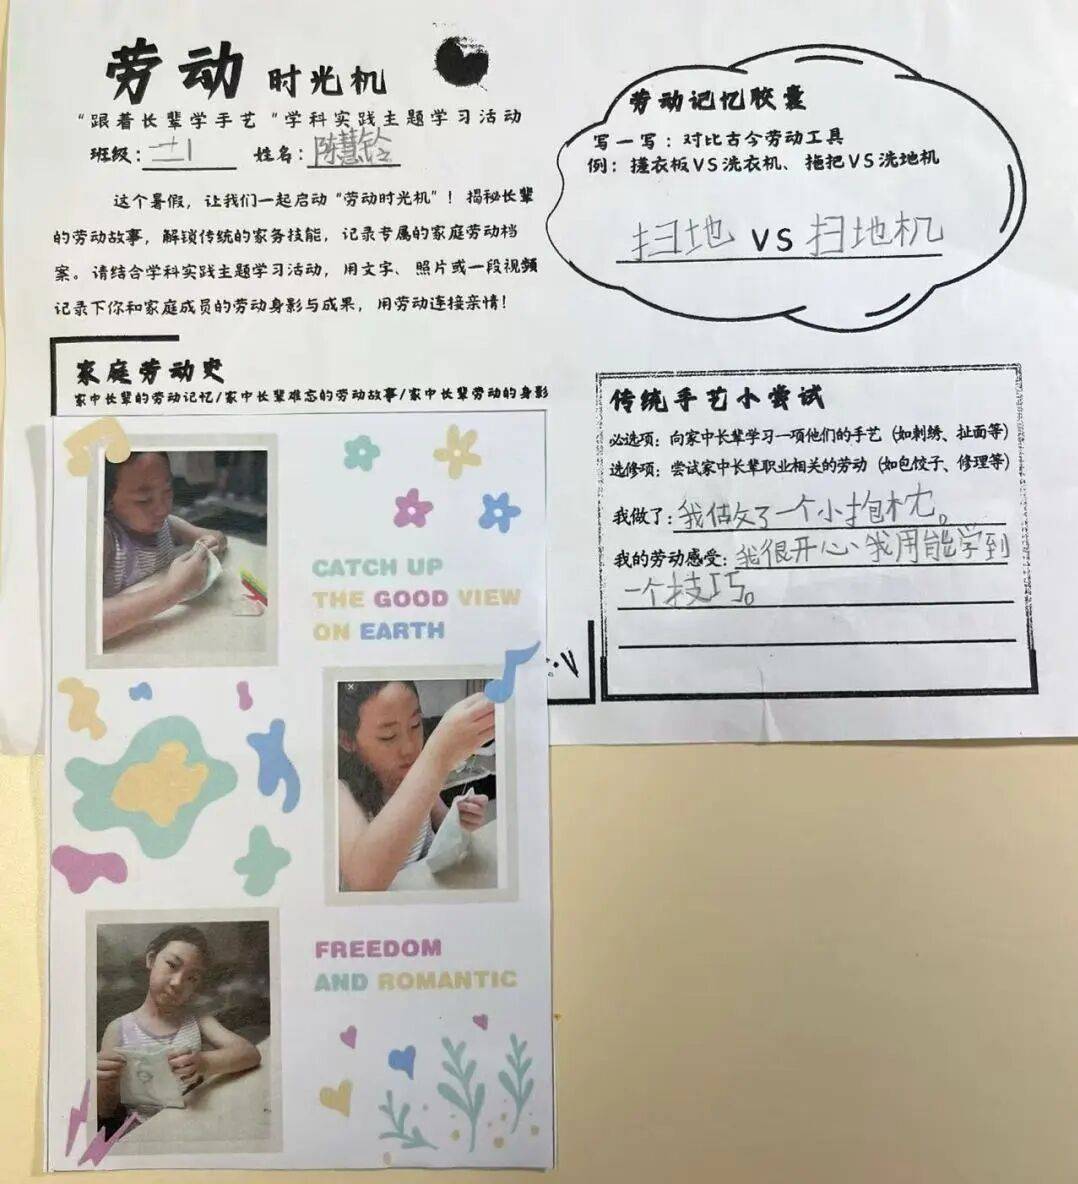 劳动时光机
“跟着长辈学手艺“学科实践主题学习活动
班级： 姓名：陈慧铃
这个暑假，让我们一起启动“劳动时光机”！揭秘长辈
的劳动故事，解锁传统的家务技能，记录专属的家庭劳动档
案。请结合学科实践主题学习活动，用文字、照片或一段视频
记录下你和家庭成员的劳动身影与成果，用劳动连接亲情！
劳动记忆胶囊
写一写：对比古今劳动工具
例：搓衣板VS洗衣机、拖把VS洗地机
扫地 VS 扫地机
家庭劳动史
家中长辈的劳动记忆/家中长辈难忘的劳动故事/家中长辈劳动的身影
CATCH UP
THE GOOD VIEW
ON EARTH
FREEDOM
AND ROMANTIC
传统手艺小尝试
必选项：向家中长辈学习一项他们的手艺（如刺绣、扯面等）
选修项：尝试家中长辈职业相关的劳动（如包饺子、修理等）
我做了：我做了一个小抱枕。
我的劳动感受：我很开心、我用能学到
一个技巧。